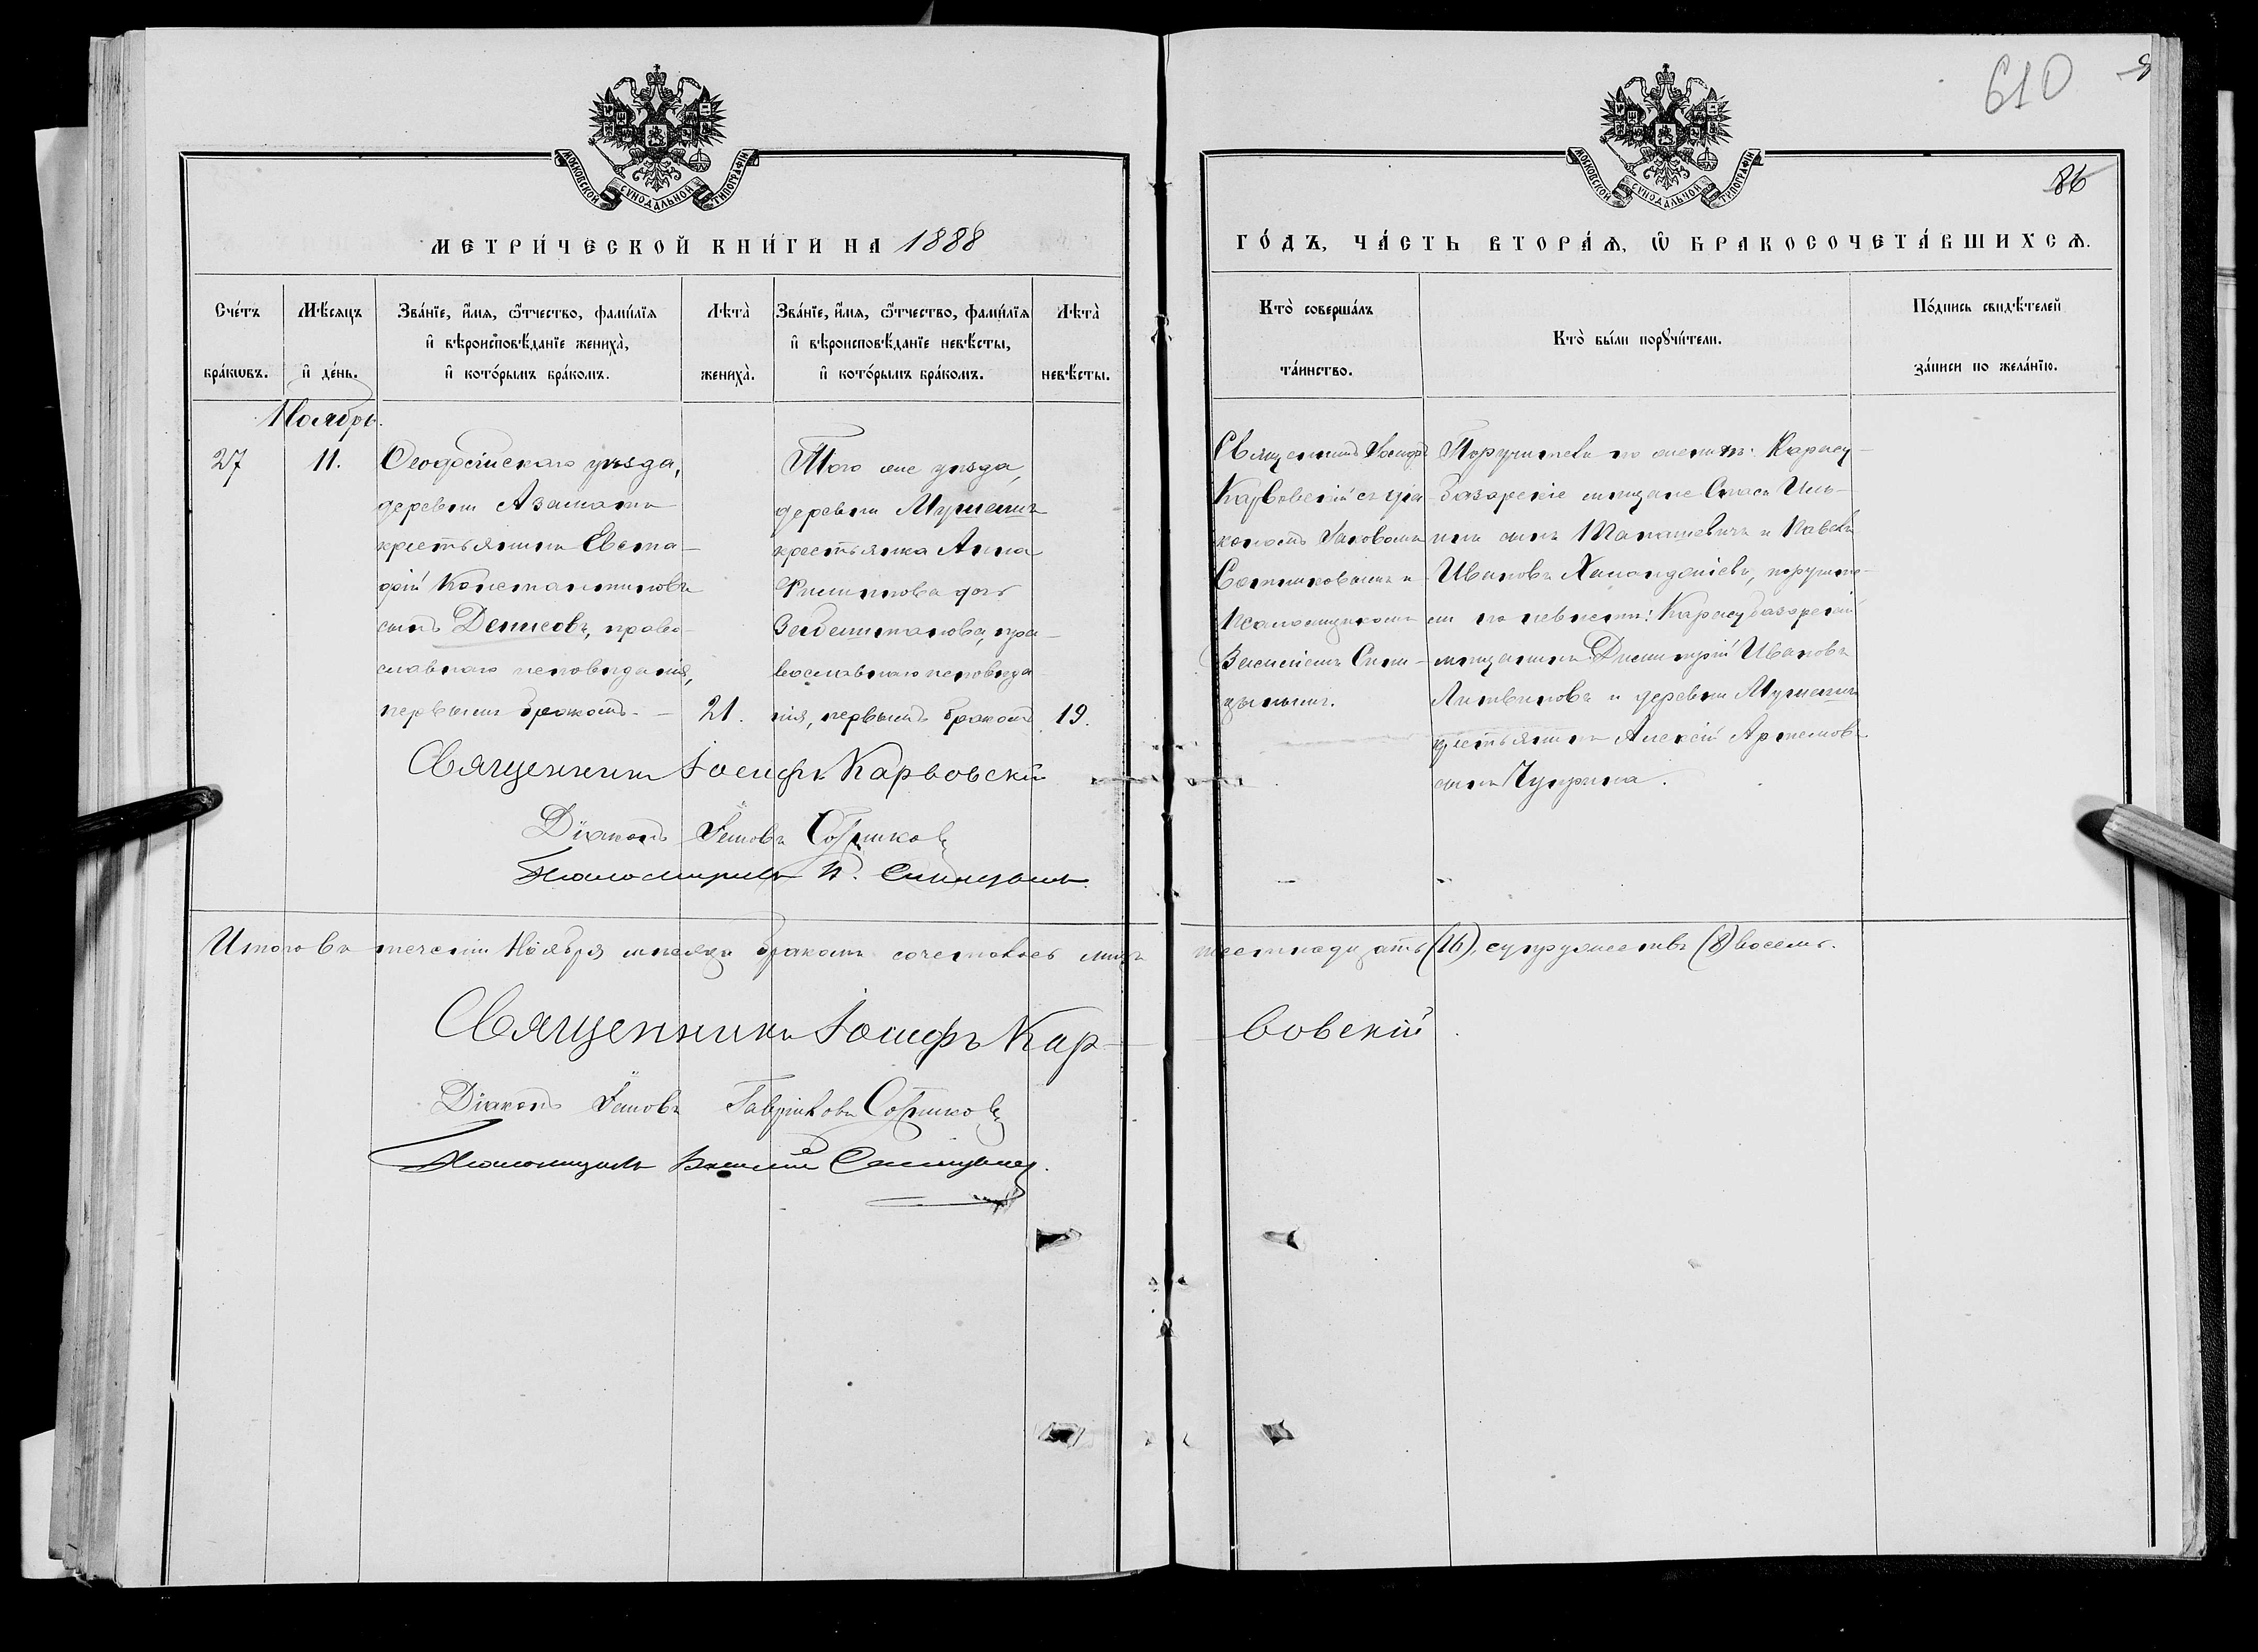 610
86
МОСКОВСКОЙ СУНОДАЛЬНОЙ ТИПОГРАФІИ
МОСКОВСКОЙ СУНОДАЛЬНОЙ ТИПОГРАФІИ
МЕТРИ́ЧЕСКОЙ КНИ́ГИ НА 1888
ГО́ДЪ, ЧА́СТЬ ВТОРА́Ѧ, Ѽ БРАКОСОЧЕТА́ВШИХСѦ.
Сче́тъ бра́кѡвъ.
Мѣ́сяцъ и҆ де́нь.
Зва́нїе, и҆́мѧ, ѻ҆́тчество, фами́лїѧ
и҆ вѣроисповѣ́данїе жениха̀,
и҆ кото́рымъ бра́комъ.
Лѣта̀ жениха̀.
Зва́нїе, и҆́мѧ, ѻ҆́тчество, фами́лїѧ
и҆ вѣроисповѣ́данїе невѣ́сты,
и҆ кото́рымъ бра́комъ.
Лѣта̀ невѣ́сты.
Кто̀ соверша́лъ
та́инство.
Кто̀ бы́ли порꙋчи́тели.
По́дпись свидѣ́телей
за́писи по жела́нїю.
Ноябрь.
27
11.
Ѳеодосійскаго уѣзда,
деревни Азаматъ
крестьянинъ Евста-
фій Константиновъ
сынъ Денисовъ, право-
славнаго исповѣданія,
первымъ бракомъ. –
21.
Того же уѣзда,
деревни
крестьянка Анна
Филиппова дочь
пра-
вославнаго исповѣда-
нія, первымъ бракомъ
19.
Священникъ Іосифъ
Карвовскій съ діа-
кономъ Іаковомъ
Сотниковымъ и
псаломщикомъ
Василіемъ Сини-
цынымъ.
Поручители по женихѣ: Карасу-
базарскіе мѣщане Спаси
сынъ и Павелъ
Ивановъ поручите-
ли по невѣстѣ: Карасубазарскій
мѣщанинъ Димитрій Ивановъ
Литвиновъ и деревни
крестьянинъ Алексій Артемовъ
сынъ Чуприна.
Священникъ Іосифъ Карвовскій
Діаконъ Іаковъ Сотниковъ
Псаломщикъ В. Синицынъ.
Итого въ теченіи Ноября мѣсяца бракомъ сочеталось лицъ шестнадцать (16), супружествъ (8) восемь.
Священникъ Іосифъ Кар-
вовскій
Діаконъ Іаковъ Гавріиловъ Сотниковъ
Псаломщикъ Василій Синицынъ.